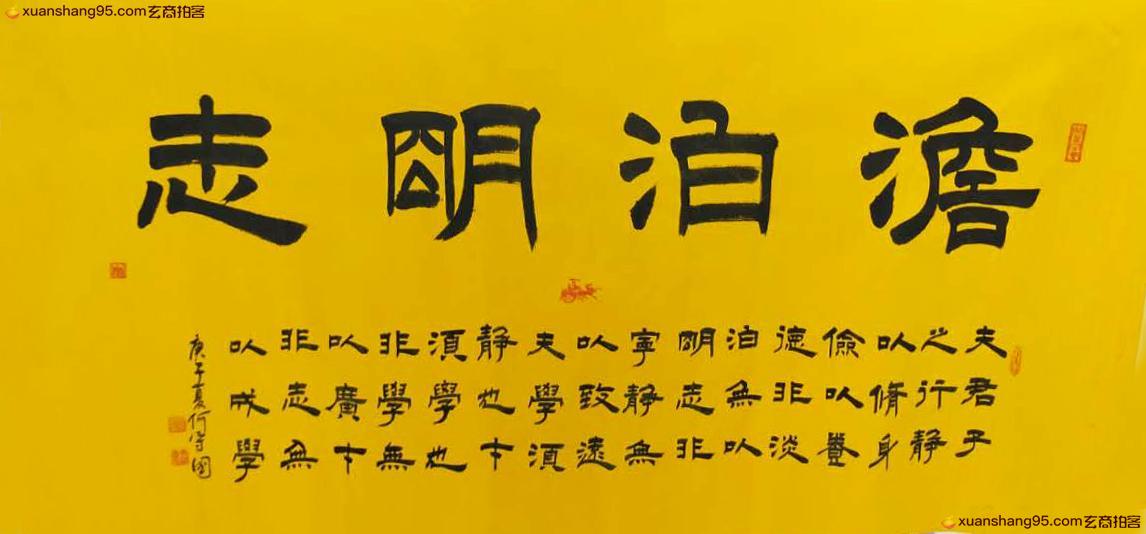 xuanshang95.com玄商拍客
澹泊明志
夫君子
之行静
以脩身
儉以養
德非淡
泊無以
明志非
寧静無
以致遠
夫學須
静也才
須學也
非學無
以廣才
非志無
以成學
庚子夏何國
xuanshang95.com玄商拍客